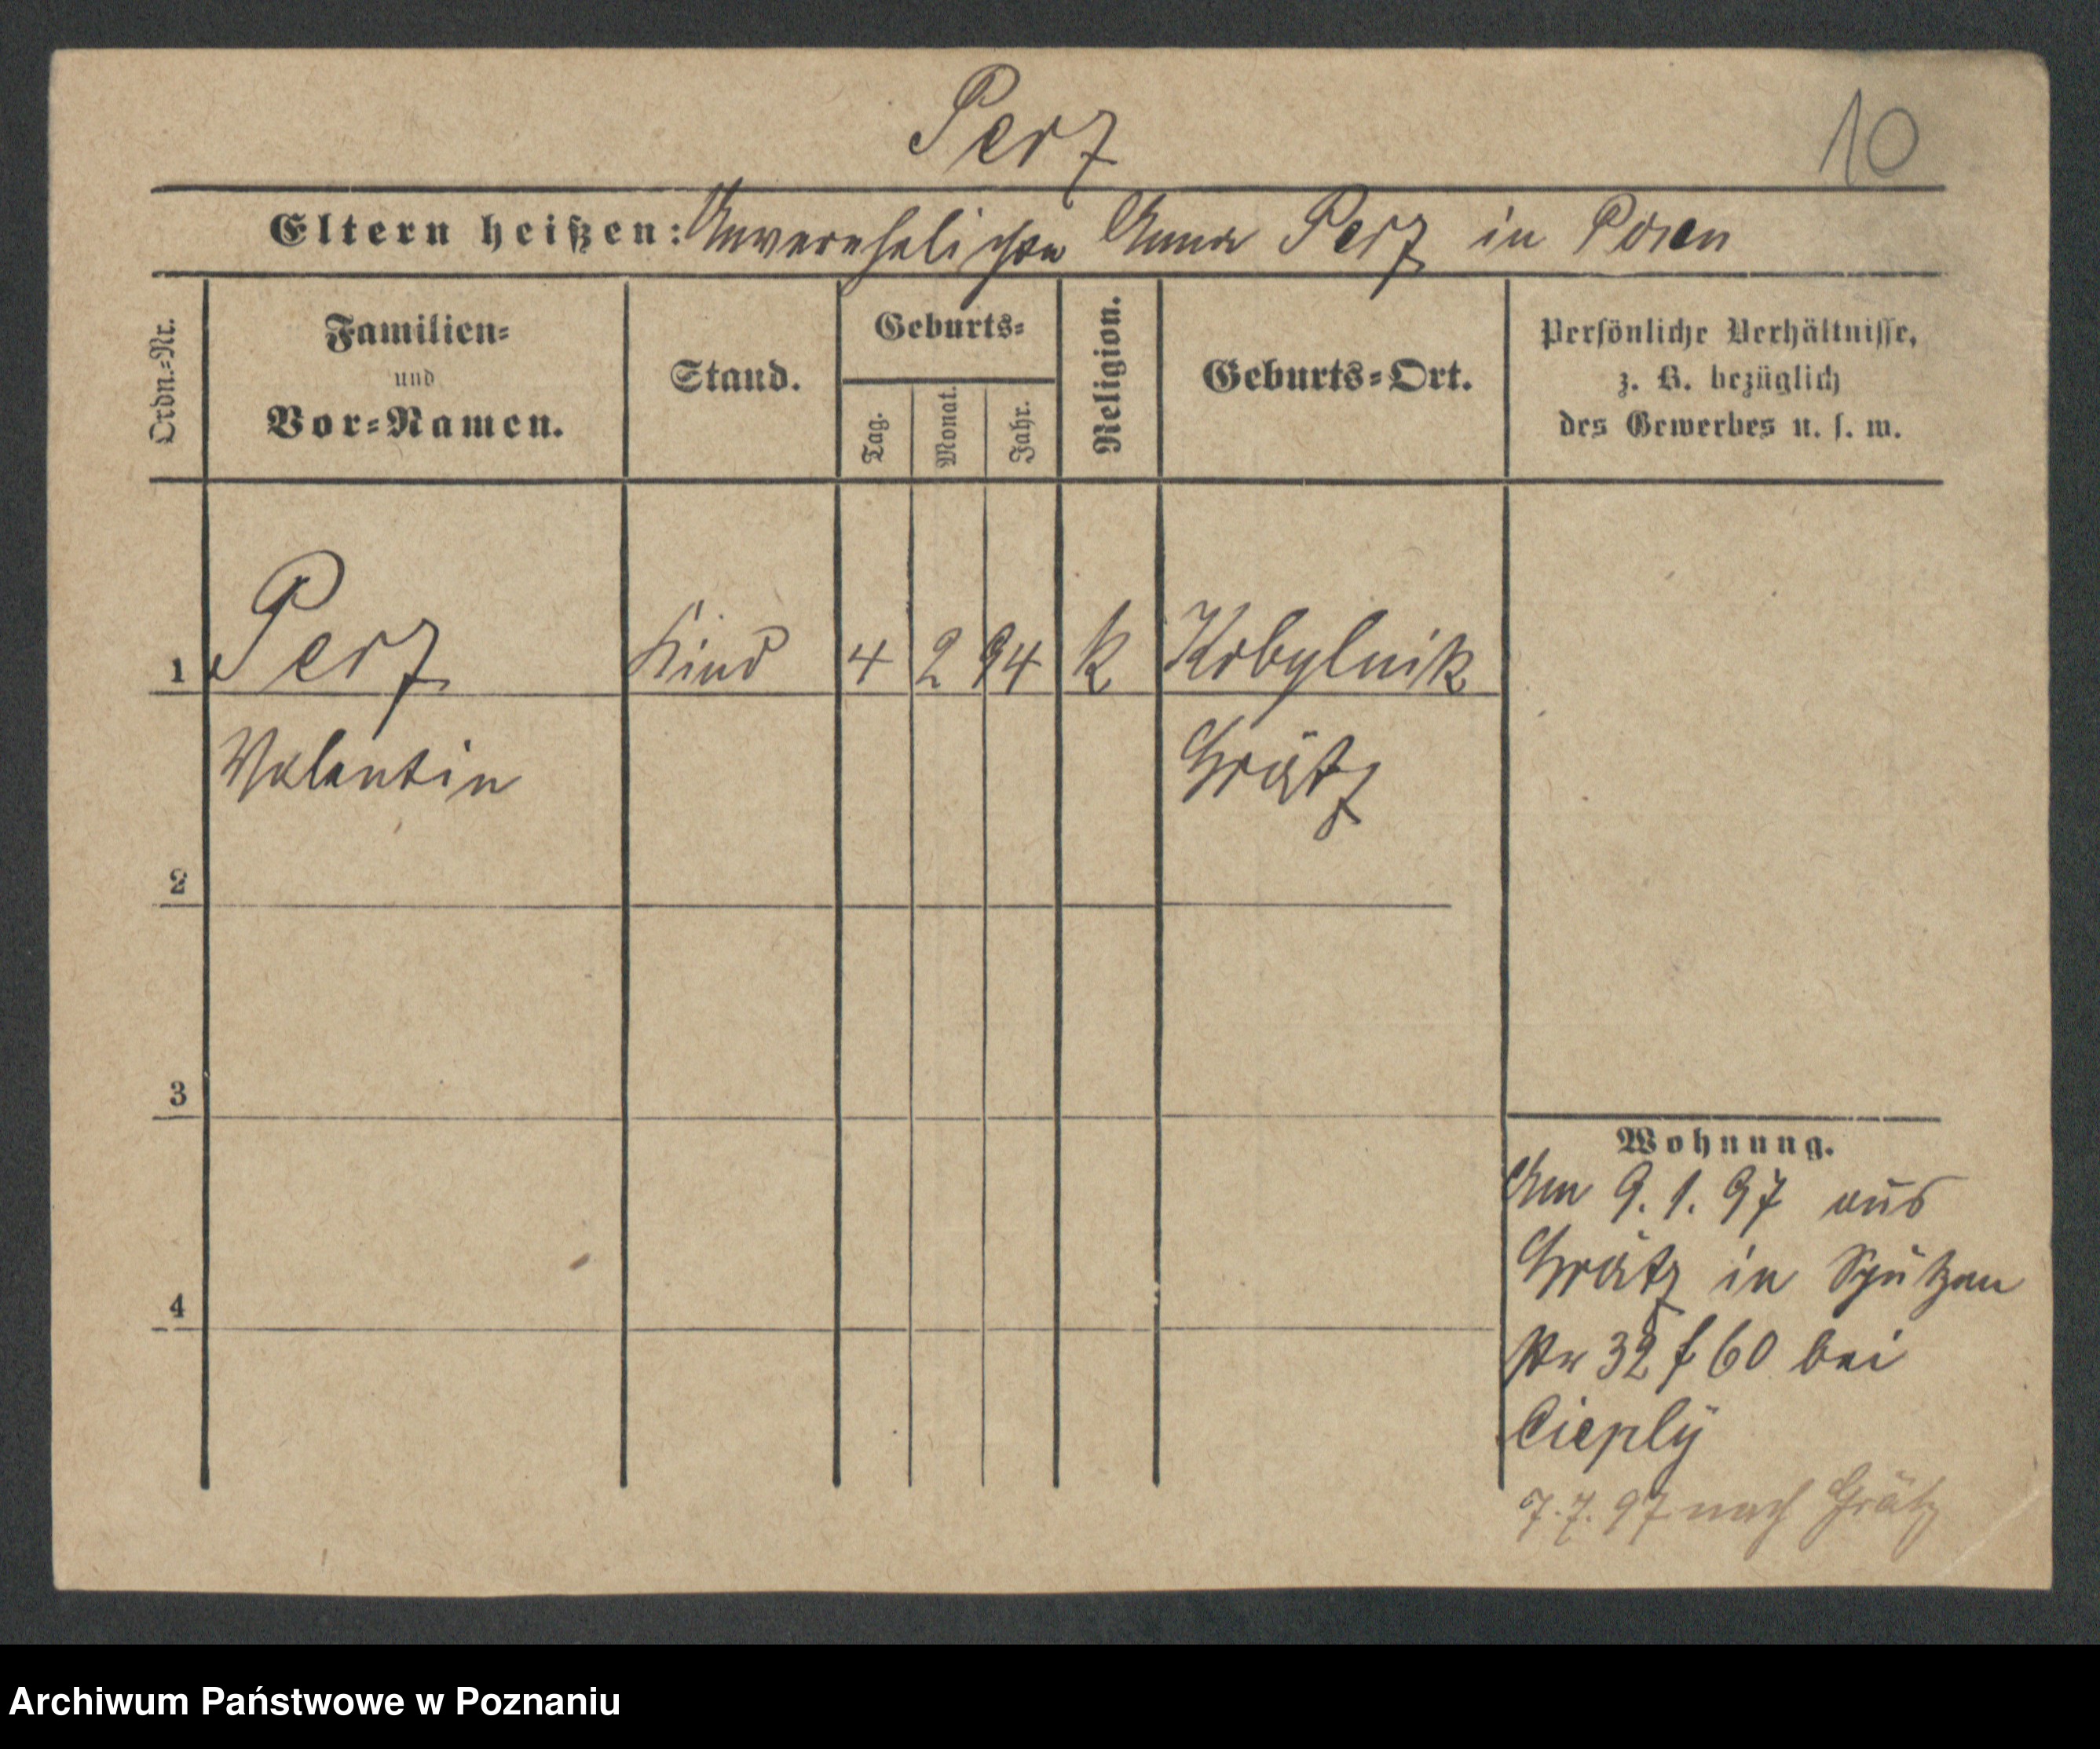 Perz
10
Eltern heißen: Unverehelichte Anna Perz in Posen
Ordn.-Nr.
Familien-
und
Vor-Namen.
Stand.
Geburts-
Tag.
Monat.
Jahr.
Religion.
Geburts-Ort.
Persönliche Verhältnisse,
z. B. bezüglich
des Gewerbes u. s. w.
1 Perz Kind 4 2 94 k Kobylnik
Valentin Grätz
2
3
4
Wohnung.
Am 9. 1. 97 aus
Grätz in
32 f 60 bei
Cieply
7. 7. 97 nach Grätz
Archiwum Państwowe w Poznaniu